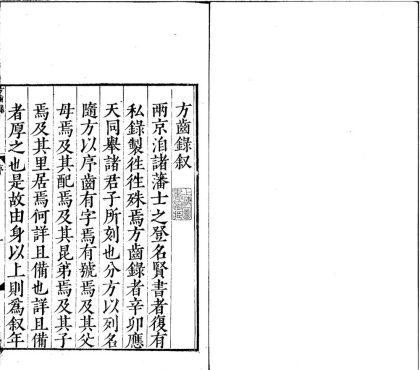 方齒錄叙
兩京洎諸藩士之登名賢書者復有
私錄製徃徃殊焉方齒錄者辛卯應
天同舉諸君子所刻也分方以列名
隨方以序齒有字焉有號焉及其父
母焉及其配焉及其昆弟焉及其子
焉及其里居焉何詳且備也詳且備
者厚之也是故由身以上則爲叙年